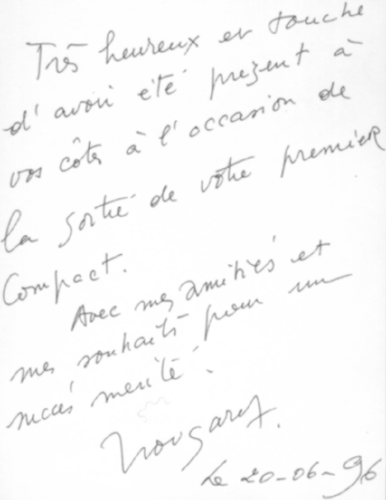 Très heureux et touché
d'avoir été présent à
vos côtés à l'occasion de
la sortie de votre premier
Compact.
Avec mes amitiés et
mes souhaits pour un
succès mérité.
Nougaro.
Le 20-06-96